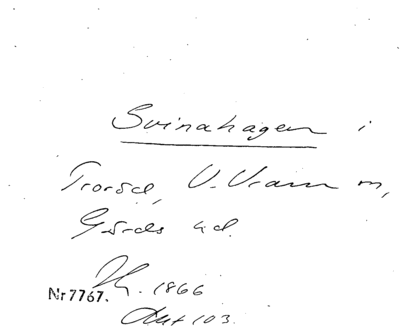 Svinahagen i
V. Vram sn,
Gärds hd.
Nr 7767. 1866
Akt 103.